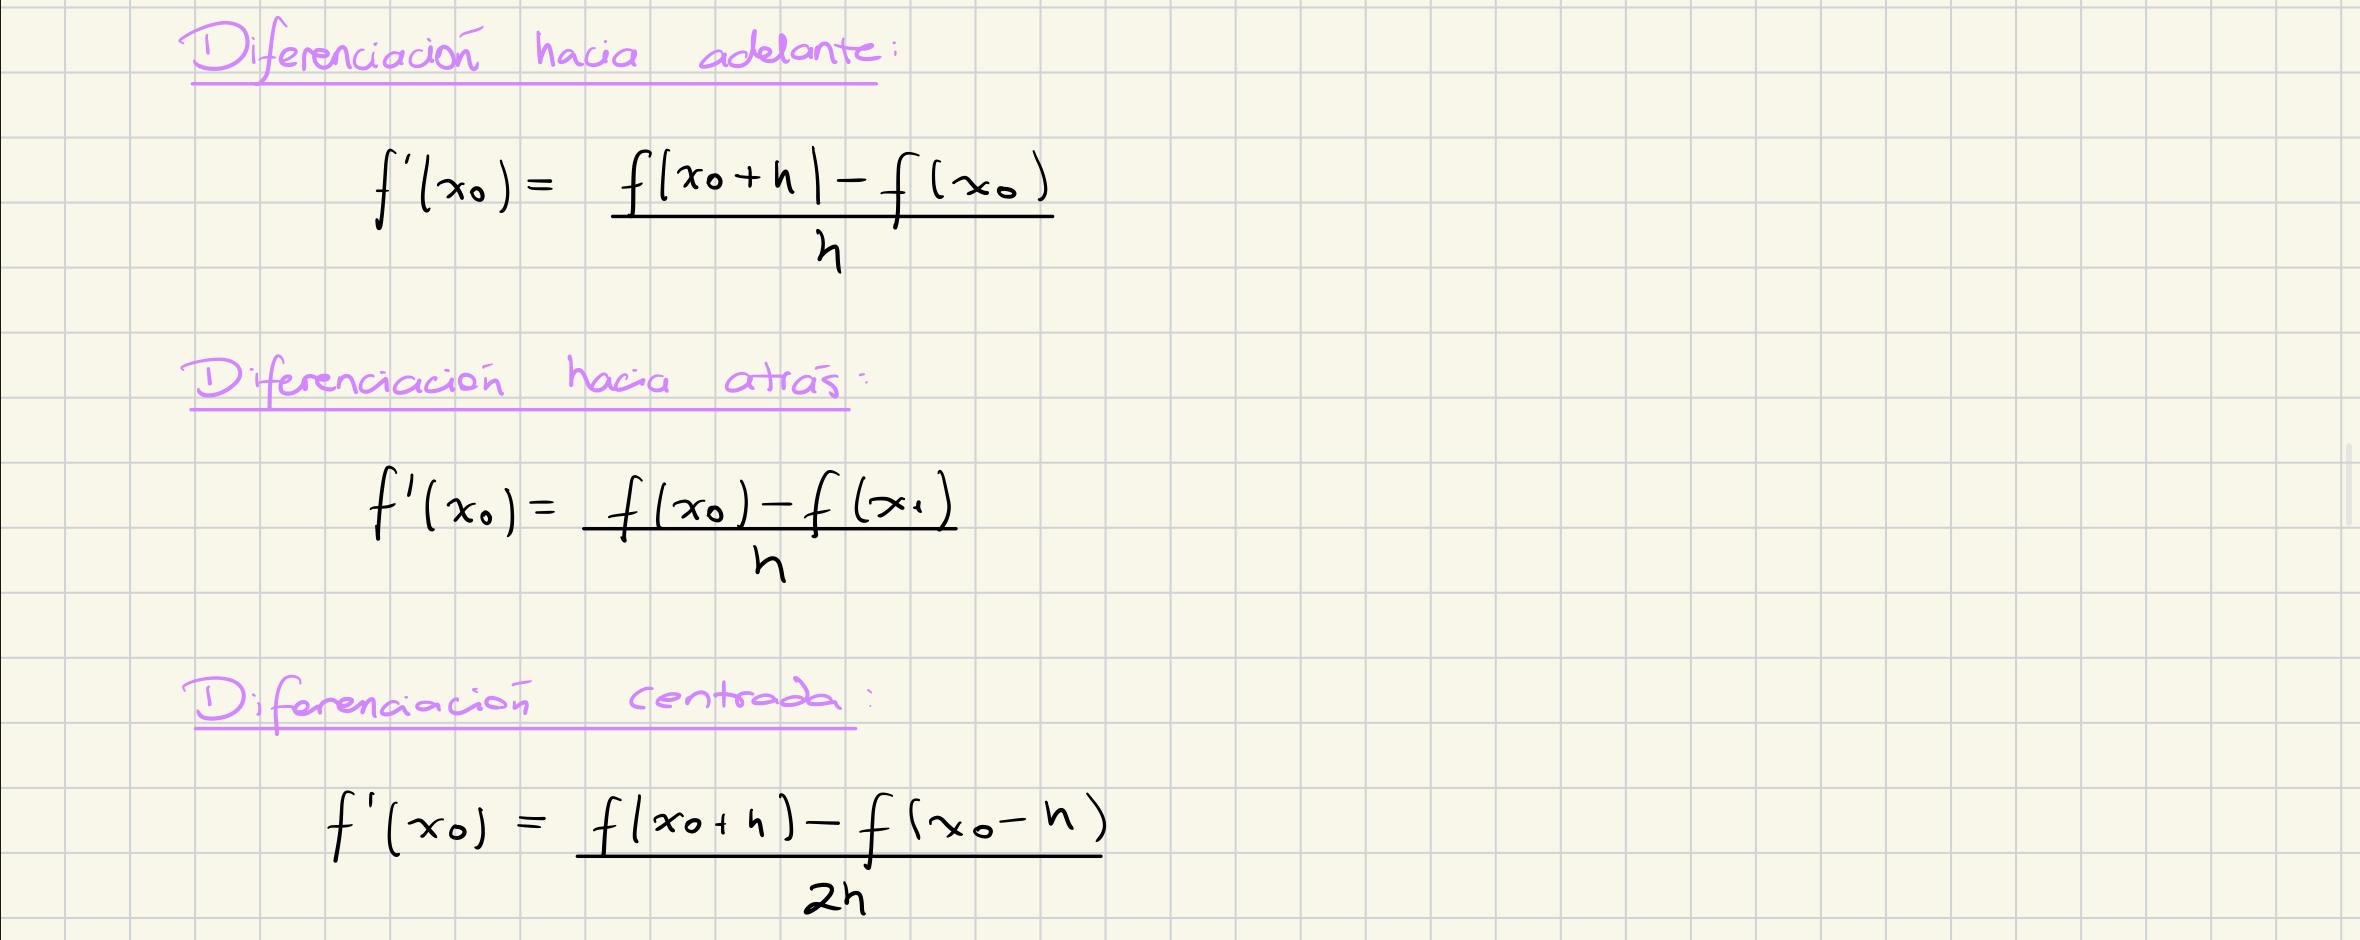 Diferenciación hacia adelante:
f'(x₀) = f(x₀+h) - f(x₀)
h
Diferenciación hacia atrás:
f'(x₀) = f(x₀) - f(x₁)
h
Diferenciación centrada:
f'(x₀) = f(x₀+h) - f(x₀-h)
2h